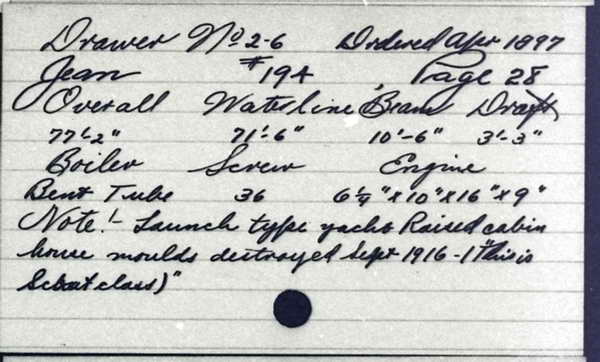 Drawer No 2-6 Ordered Apr 1897
Jean #194 Page 28
Overall Waterline Beam Draft
77'-2" 71'-6" 10'-6" 3'-3"
Boiler Screw Engine
Bent Tube 36 6¼"x10"x16"x9"
Note:- Launch type yacht Raised cabin
house moulds destroyed Sept 1916 - ("This is
Scout class)"